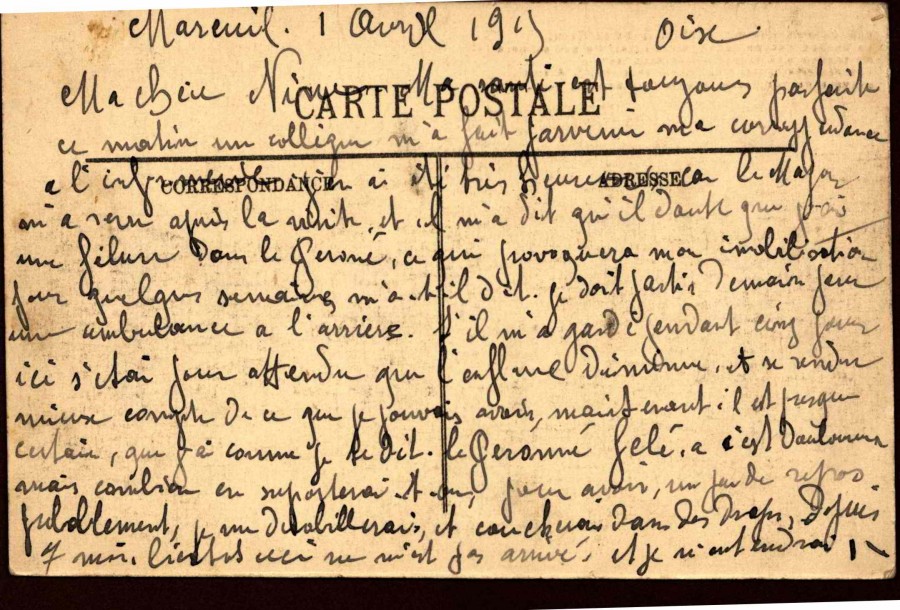 Mareuil. 1 Avril 1915 Oise
Ma chère Ma santé est toujours parfaite
CARTE POSTALE
ce matin un collègue m'a fait parvenir ma correspondance
CORRESPONDANCE ADRESSE
a l'infirmerie j'en ai été très heureux, car le Major
m'a revu après la visite, et il m'a dit qu'il doute que j'ai
une fêlure dans le Peroné, ce qui provoquera mon imobilisation
pour quelques semaines m'a-t-il dit. je doit partir demain pour
une ambulance a l'arrière. S'il m'a gardé pendant cinq jours
ici s'étai pour attendre que l'enflure diminue, et se rendre
mieux compte de ce que je pouvais avoir, maintenant il est presque
certain, que j'ai comme je te dit. le Peronné fêlé, a c'est douloureux
mais combien en suporterai t-on, pour avoir, un peu de repos
probablement, je me desabillerais, et coucherai dans des draps, depuis
7 mois bientot ceci ne m'est pas arrivé, et je n'entendrai